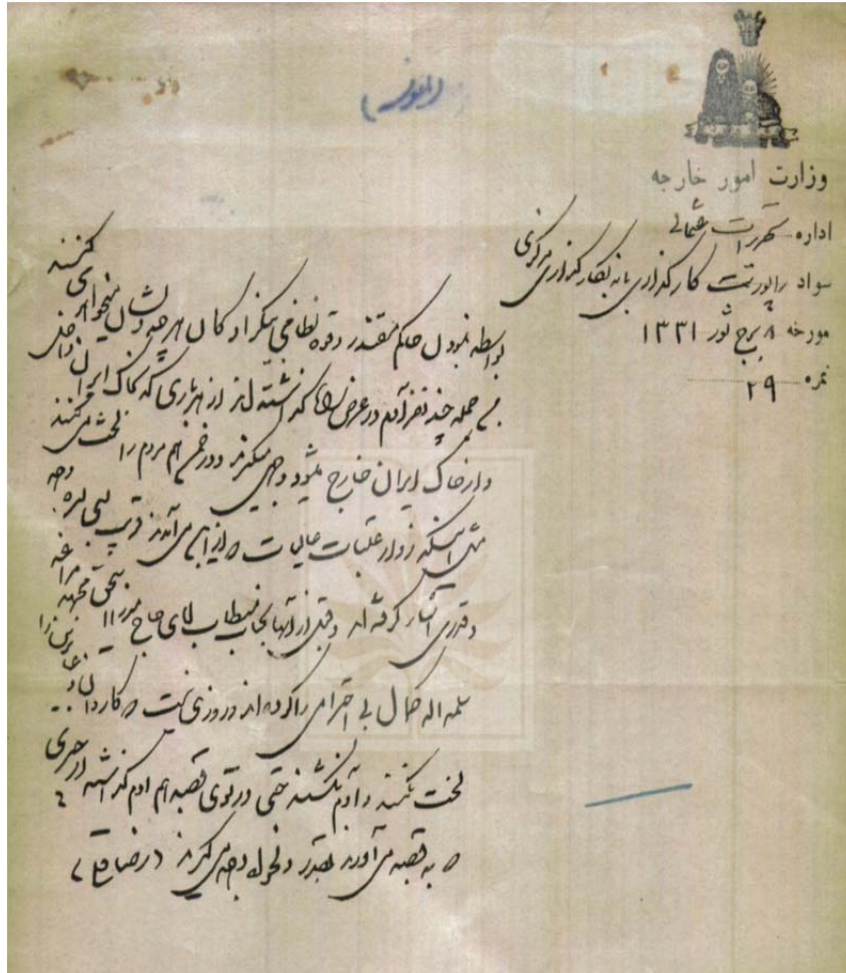 وزارت امور خارجه
اداره تحریرات شمالی
سواد راپورت کارگذاری بانه بکارگذاری مرکزی
مورخه ۸ برج ثور ۱۳۳۱
نمره ۲۹
بواسطه نبودن حاکم مقتدر و قوه نظامی سکراد کمال هرچه دلشان میخواهد می کنند
من جمله چند نفر آدم در عرض راهها گذاشته‌اند از هر باری که بخاک ایران داخل
و از خاک ایران خارج میشود وجهی میگیرند و در ضمن هم مردم را لخت می کنند
مثل اینکه زوار عتبات عالیات که از این می‌آمدند قریب وجه
و قدری اشیاء گرفته‌اند و قبل از آنها بجناب حاج میرزا مراغه
سلمه اله کمال بی احترامی را کرده‌اند و روزی نیست که کاروان
لخت نکنند و آدم نکشند حتی در توی قصبه هم آدم گذاشته از چیزی
که به قصبه می‌آورند بقدر دلخواه وجه می‌گیرند (رضاقلی)